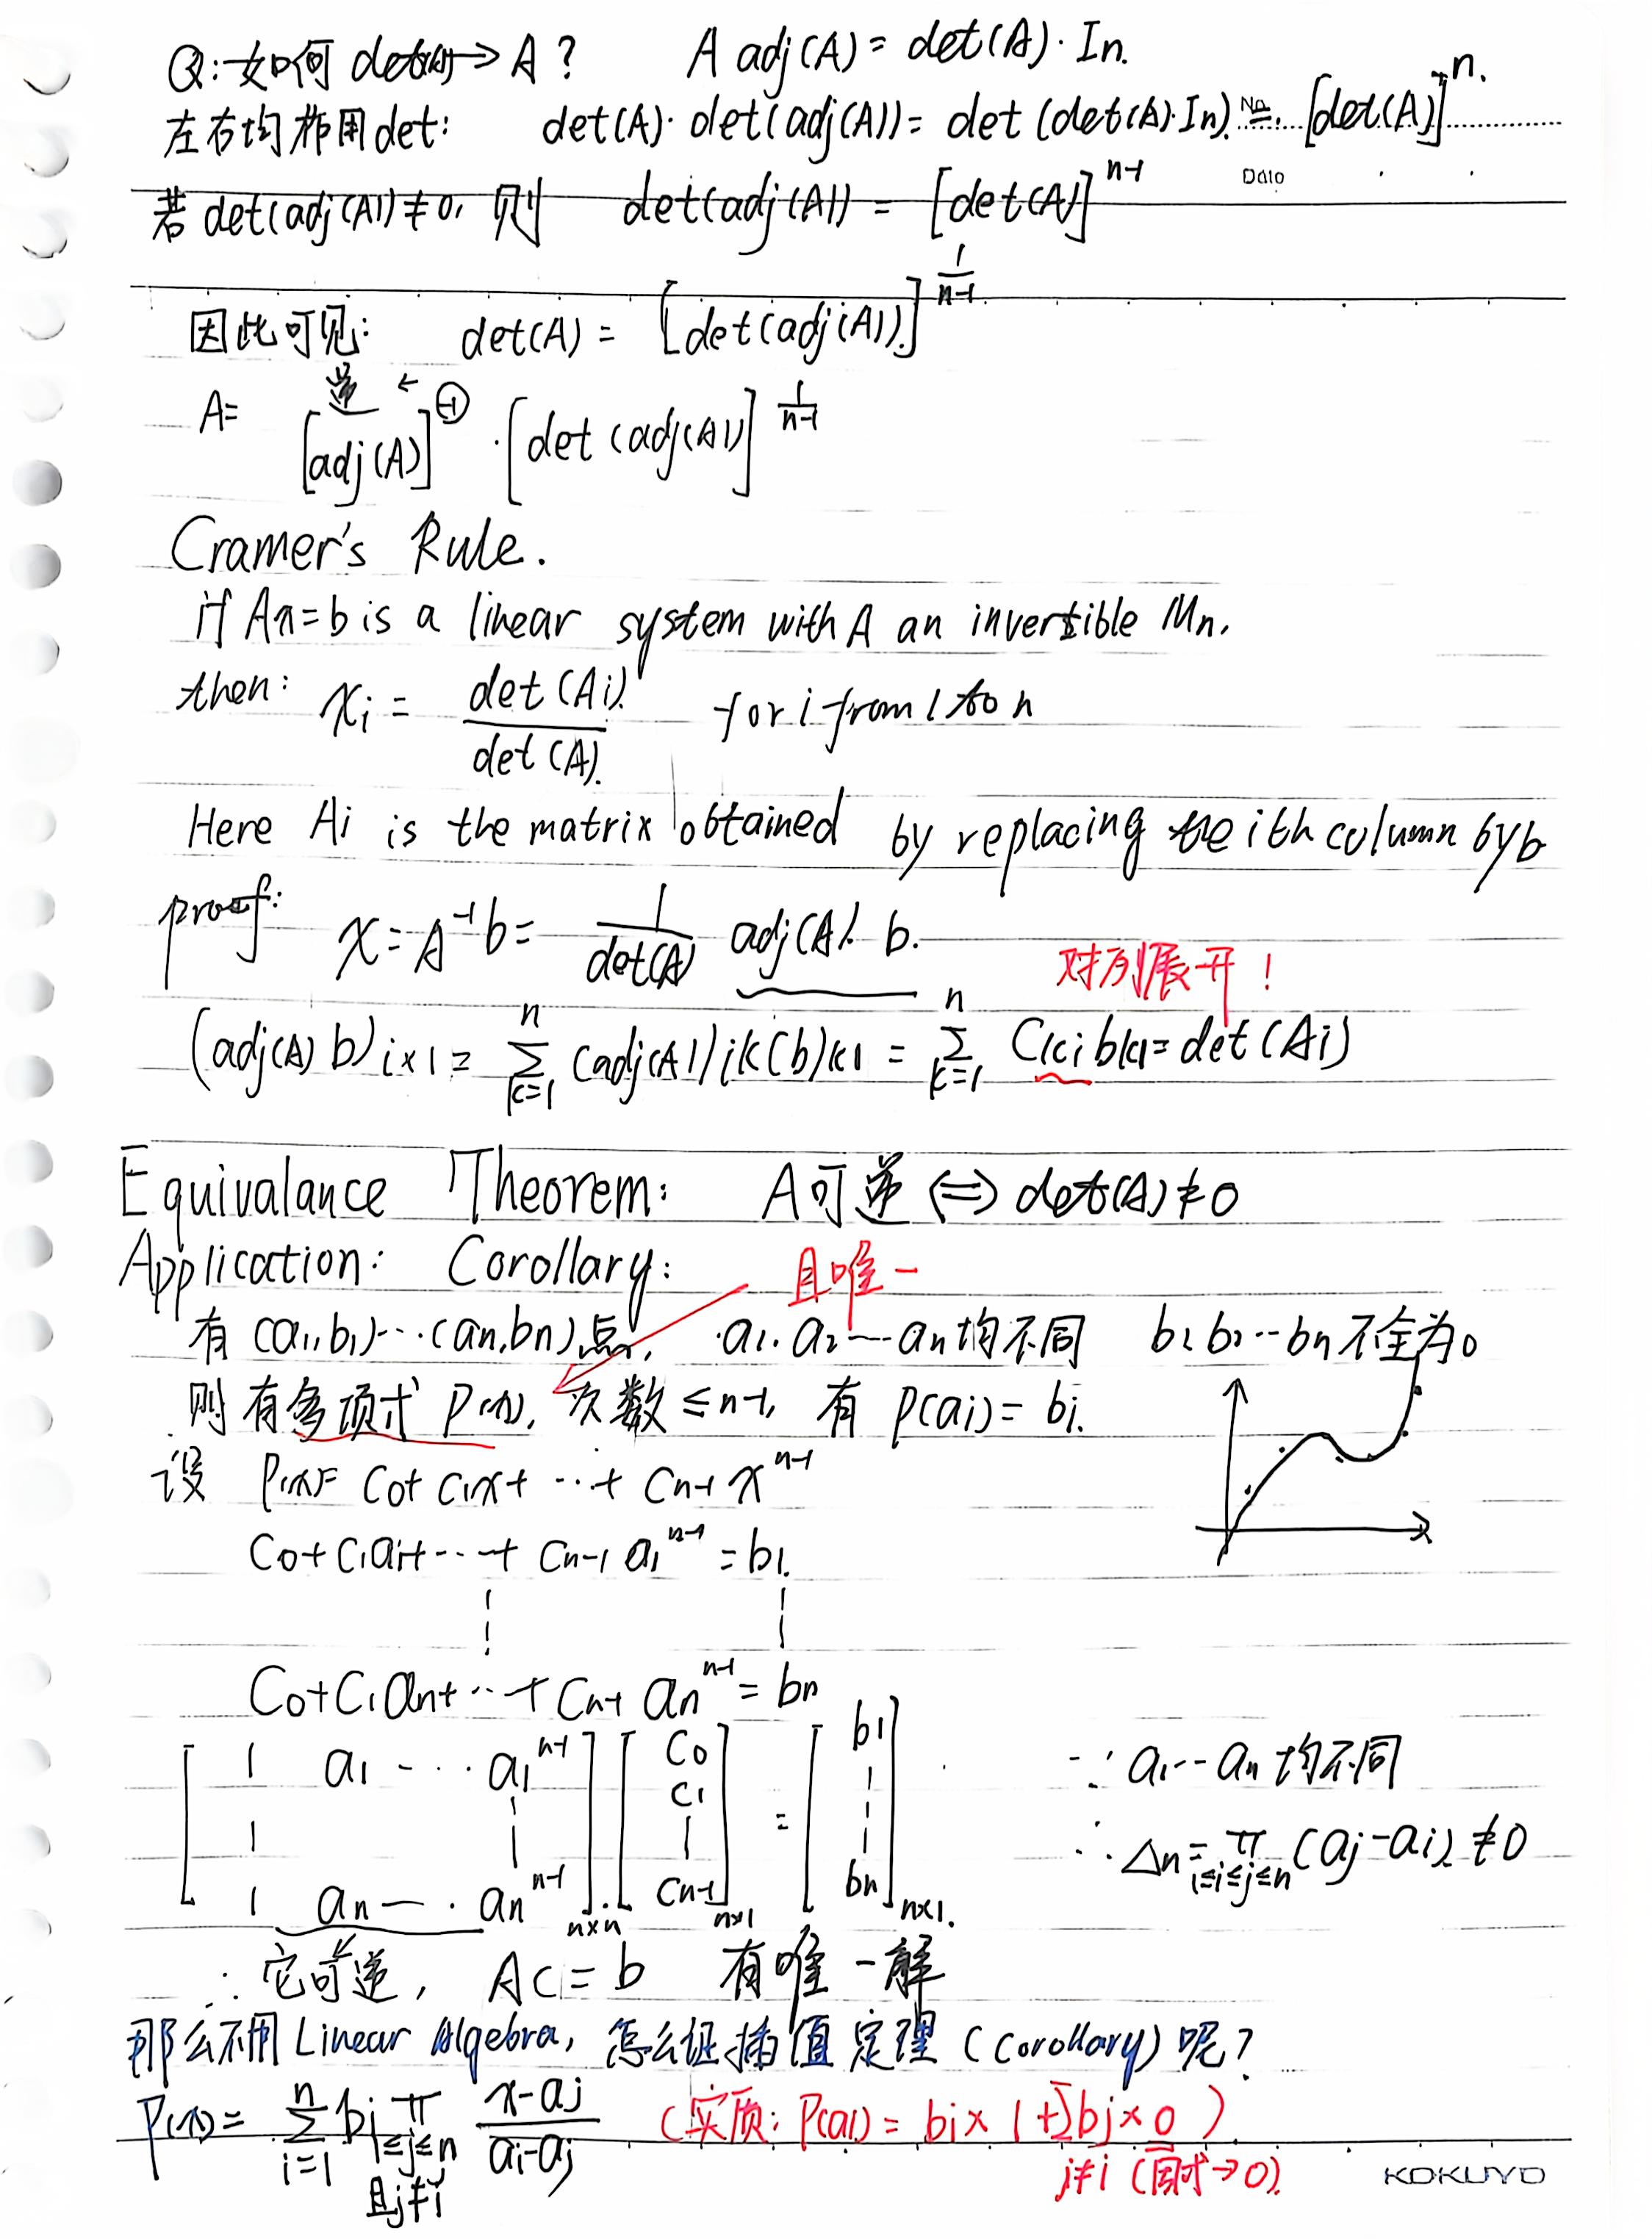 Q:如何 det(A)→A? A adj(A)= det(A)·In.
左右均都用det: det(A)· det(adj(A))= det (det(A)·In) = [det(A)]^n.
No.
若 det(adj(A))≠0, 则 det(adj(A)) = [det(A)]^{n-1}
Date
因此可见: det(A) = [det(adj(A))]^{1/(n-1)}
逆 ←
A= [adj(A)]^{-1} · [det (adj(A))]^{1/(n-1)}
Cramer's Rule.
if Ax=b is a linear system with A an invertible Mn.
then: xi = det(Ai)/det(A) for i from 1 to n
Here Ai is the matrix obtained by replacing the ith column by b
proof: x=A^{-1}b= 1/det(A) adj(A). b.
对列展开!
(adj(A) b)i×1 = Σ_{k=1}^{n} (adj(A))ik(b)k1 = Σ_{k=1}^{n} Cki bk1= det(Ai)
Equivalance Theorem: A可逆 ⇔ det(A)≠0
Application: Corollary: 且唯一
有 (a1,b1)···(an,bn)点, a1. a2 ··· an 均不同 b1 b2 ·· bn 不全为0
则有多项式 P(x), 次数 ≤n-1, 有 P(ai)= bi.
设 P(x)= C0+ C1x+ ···+ Cn-1 x^{n-1}
C0+ C1a1+ ···+ Cn-1 a1^{n-1} = b1.
C0+C1an+ ··+ Cn-1 an^{n-1} = bn
[ 1 a1 ··· a1^{n-1} ] [ C0 ] = [ b1 ] ∵ a1 ·· an 均不同
C1
∴ Δn= π_{1≤i≤j≤n} (aj-ai) ≠0
[ 1 an ··· an^{n-1} ]n×n · [ Cn-1 ]n×1 [ bn ]n×1.
∴ 它可逆, AC=b 有唯一解
那么不用Linear Algebra, 怎么证插值定理 (Corollary)呢?
P(x)= Σ_{i=1}^{n} bi π_{1≤j≤n 且j≠i} (x-aj)/(ai-aj) (实质: P(ai) = bi × 1 + Σbj × 0 )
j≠i ( →0)
KOKUYO